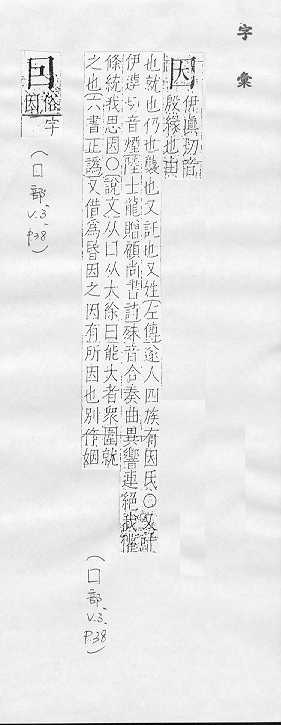 字彙
因 伊真切音
殷緣也由
也就也仍也襲也又託也又姓左傳遂人四族有因氏〇又叶
伊遵切音煙陸士龍贈顧尚書詩殊音合奏曲異響連絕我
條統我思因〇說文从囗从大徐曰能大者衆圍就
之也六書正譌又借為昏因之因有所因也別作姻
(囗部、v.3、p.38)
俗
因字
(囗部、v.3、p.38)